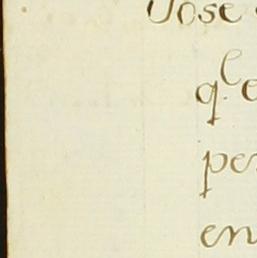 Jose
ql e
per
en